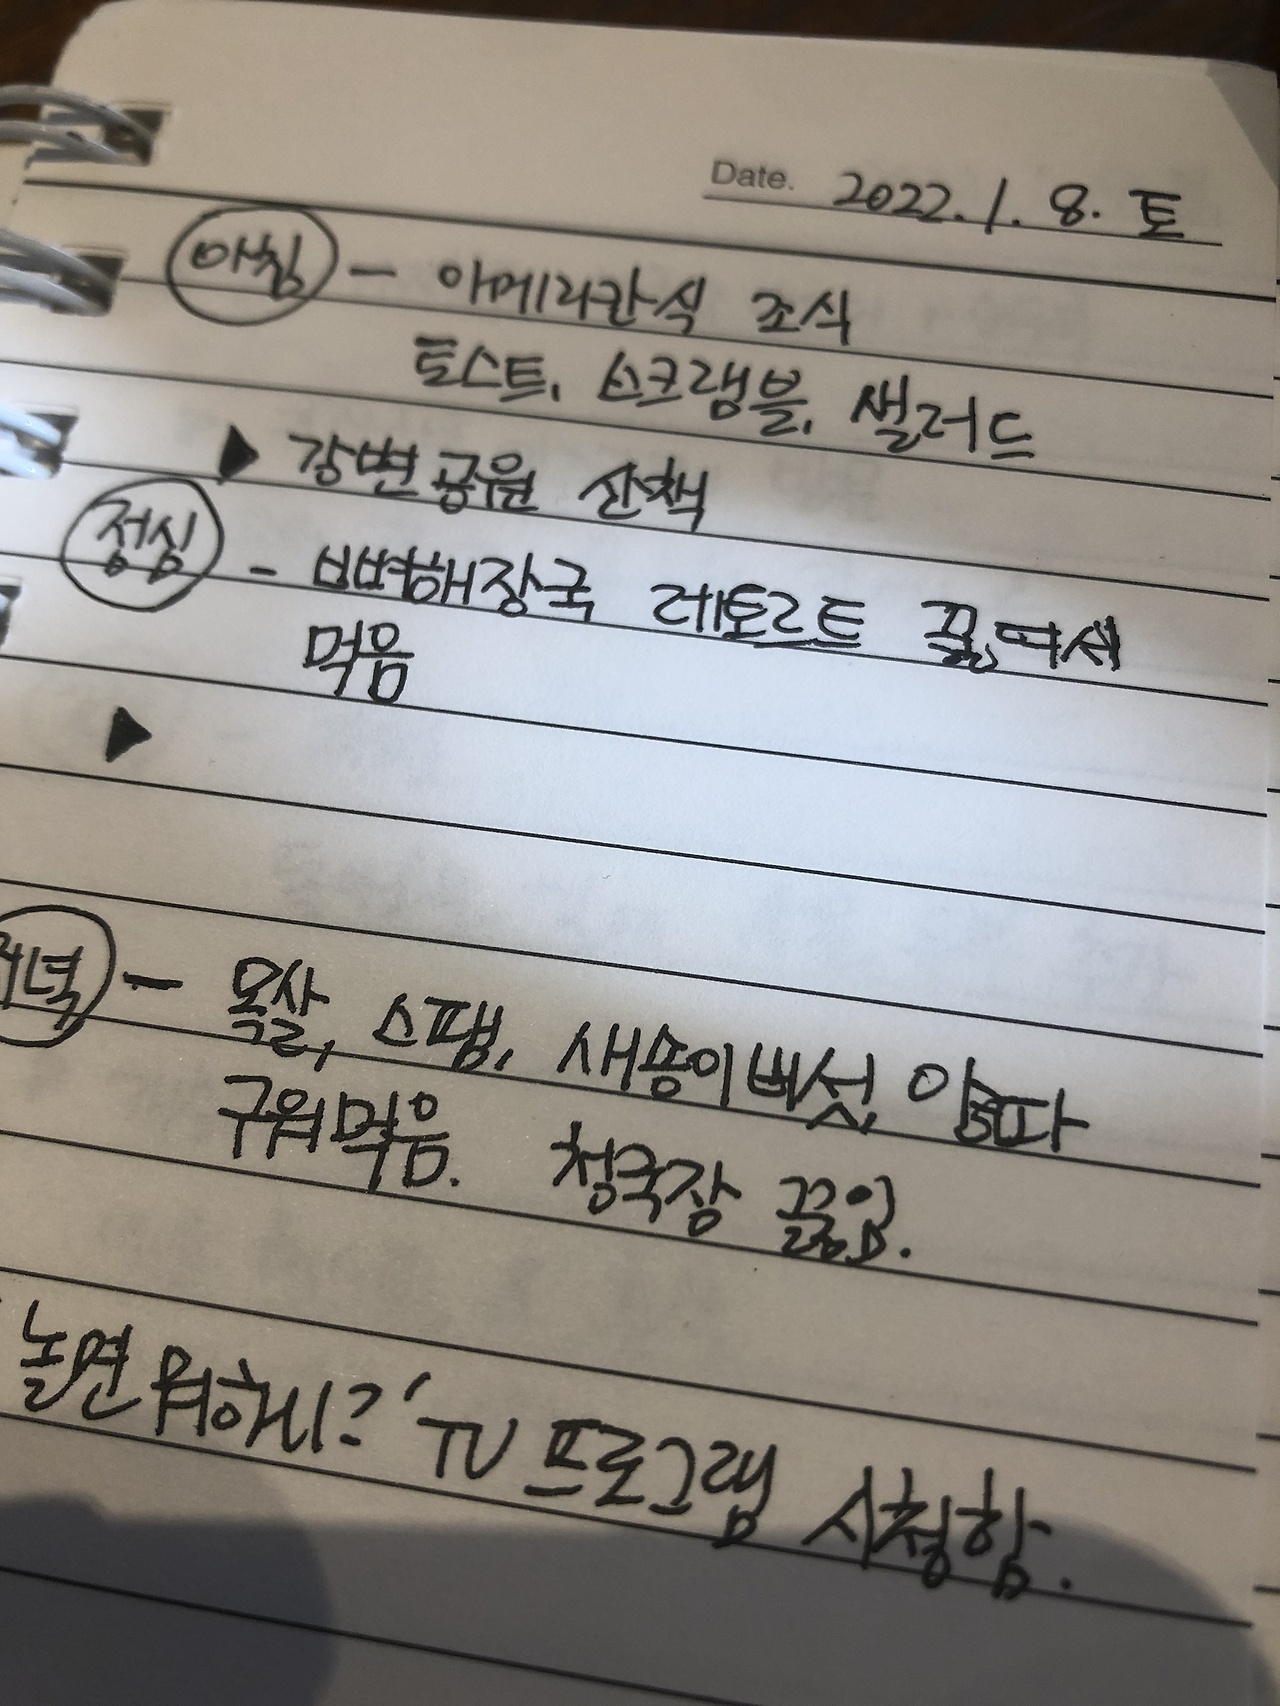 Date. 2022. 1. 8. 토
아침 - 아메리칸식 조식
토스트, 스크램블, 샐러드
▶ 강변공원 산책
점심 - 뼈해장국 레토르트 끓여서
먹음
▶
저녁 - 목살, 스팸, 새송이버섯, 양파
구워먹음. 청국장 끓임.
'놀면 뭐하니?' TV 프로그램 시청함.